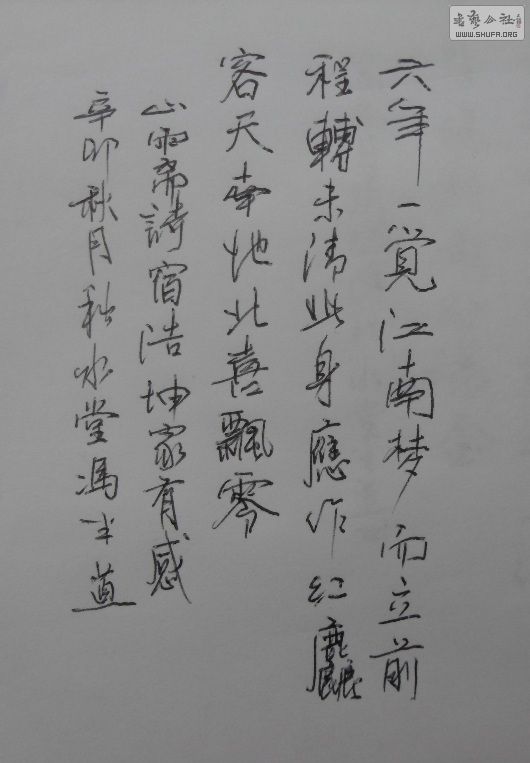 六年一觉江南梦而立前
程轉未清此身應作红塵
客天南地北喜飄零
山雨斋詩宿浩坤家有感
辛卯秋月秋水堂馮半道
书艺公社
WWW.SHUFA.ORG